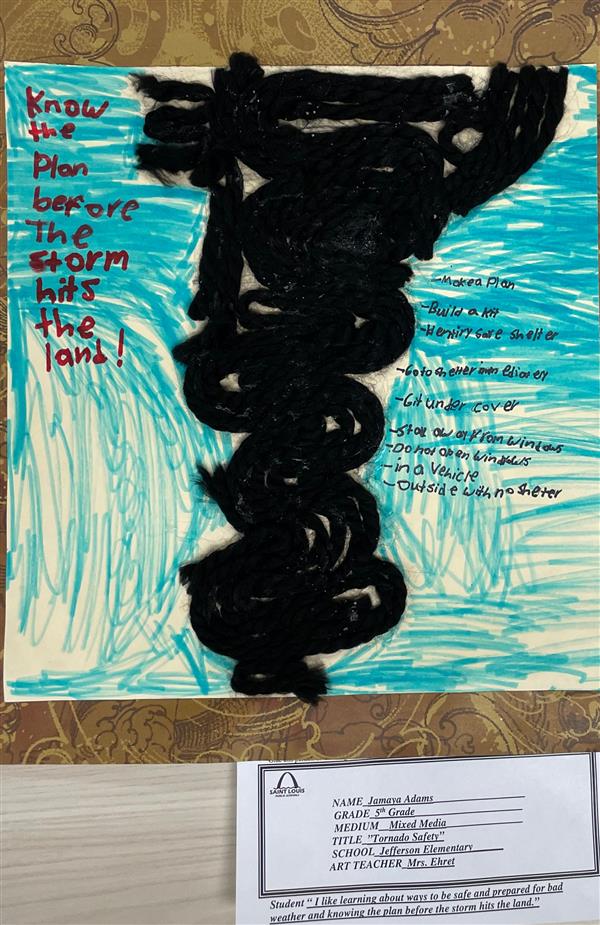 Know
the
Plan
before
The
storm
hits
the
land!
-Make a Plan
-Build a kit
-Identify safe shelter
-Go to shelter immediately
-Git under cover
-Stay away from windows
-Do not open windows
-in a Vehicle
-Outside with no shelter
SAINT LOUIS
PUBLIC SCHOOLS
NAME Jamaya Adams
GRADE 5th Grade
MEDIUM Mixed Media
TITLE "Tornado Safety"
SCHOOL Jefferson Elementary
ART TEACHER Mrs. Ehret
Student " I like learning about ways to be safe and prepared for bad
weather and knowing the plan before the storm hits the land."